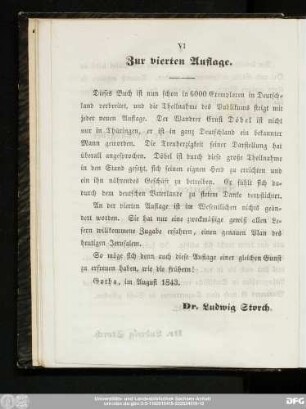 VI
Zur vierten Auflage.
Dieses Buch ist nun schon in 6000 Exemplaren in Deutsch-
land verbreitet, und die Theilnahme des Publikums steigt mit
jeder neuen Auflage. Der Wanderer Ernst Döbel ist nicht
nur in Thüringen, er ist in ganz Deutschland ein bekannter
Mann geworden. Die Treuherzigkeit seiner Darstellung hat
überall angesprochen. Döbel ist durch diese große Theilnahme
in den Stand gesetzt, sich seinen eignen Herd zu errichten und
ein ihn nährendes Geschäft zu betreiben. Er fühlt sich da-
durch dem deutschen Vaterlande zu stetem Danke verpflichtet.
An der vierten Auflage ist im Wesentlichen nichts geän-
dert worden. Sie hat nur eine zweckmäßige gewiß allen Le-
sern willkommene Zugabe erhalten, einen genauen Plan des
heutigen Jerusalem.
So möge sich denn auch diese Auflage einer gleichen Gunst
zu erfreuen haben, wie die frühern!
Gotha, im August 1843.
Dr. Ludwig Storch.